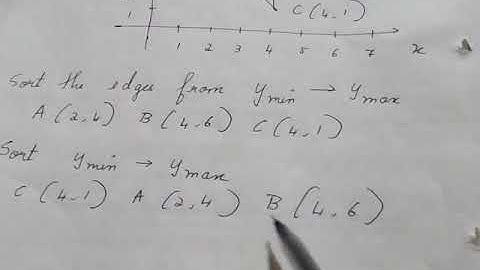 C(4,1)
1
1 2 3 4 5 6 7 x
Sort the edges from ymin → ymax
A(2,4) B(4,6) C(4,1)
Sort ymin → ymax
C(4,1) A(2,4) B(4,6)